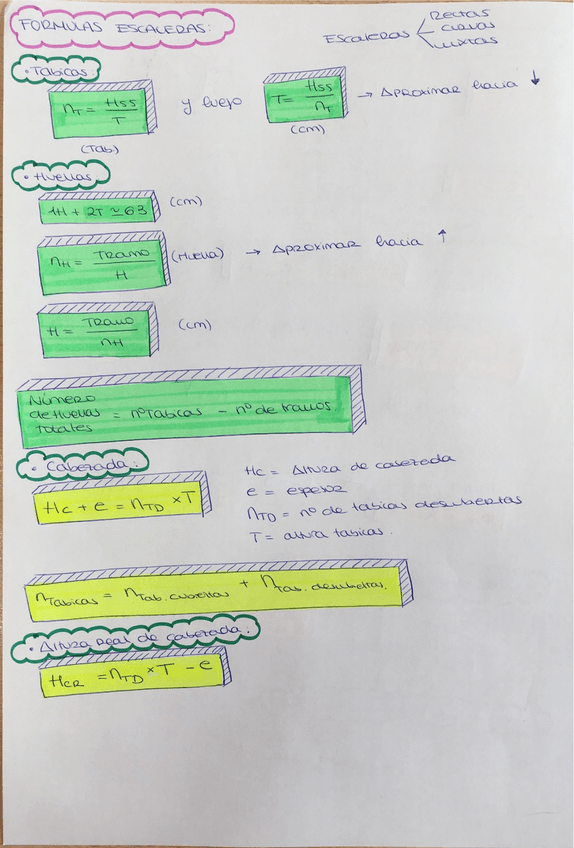 FORMULAS ESCALERAS:
ESCALERAS < Rectas
curvas
mixtas
• Tabicas:
nT = Hss / T y luego T = Hss / nT → Aproximar hacia ↓
(Tab) (cm)
• Huellas
1H + 2T ≃ 63 (cm)
nH = Tramo / H (Huella) → Aproximar hacia ↑
H = Tramo / nH (cm)
Número
de Huellas = nº Tabicas - nº de tramos.
Totales
• Cabezada:
Hc + e = nTD × T
Hc = Altura de cabezada
e = espesor
nTD = nº de tabicas descubiertas
T = altura tabicas.
nTabicas = nTab. cubiertas + nTab. descubiertas.
• Altura real de cabezada:
HCR = nTD × T - e